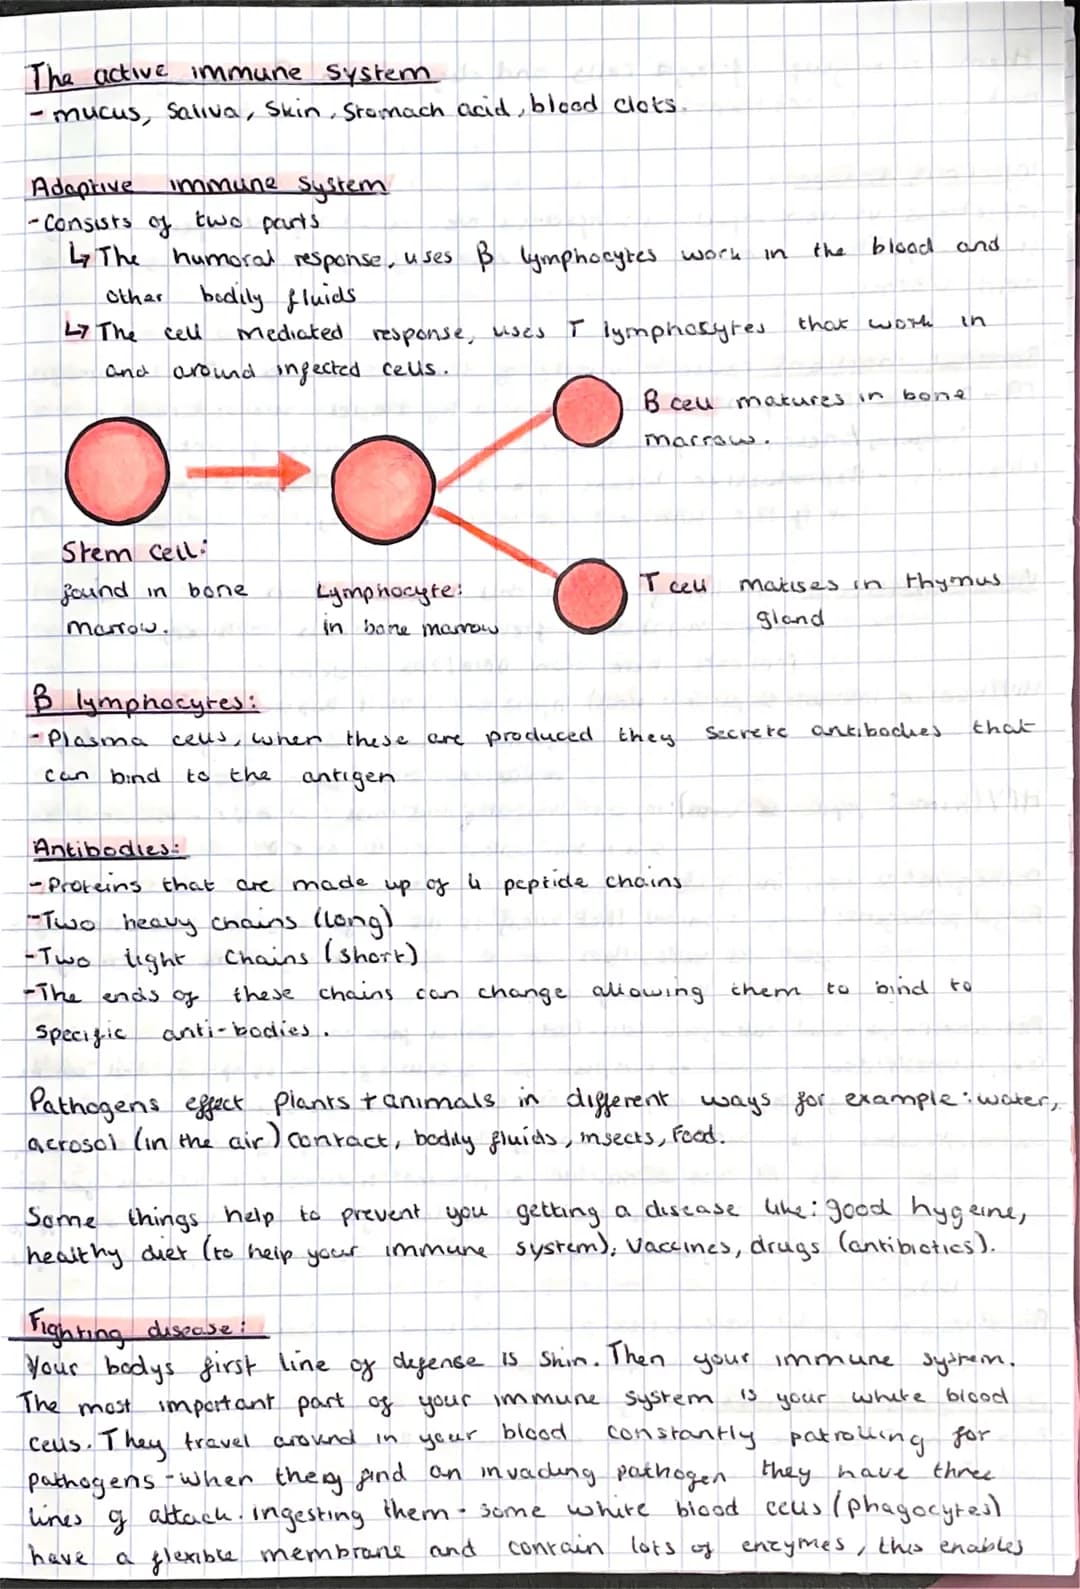 The active immune system
- mucus, Saliva, Skin, Stomach acid, blood clots.
Adaptive immune System
- Consists of two parts
↳ The humoral response, uses B lymphocytes work in the blood and
other bodily fluids
↳ The cell mediated response, uses T lymphocytes that work in
and around infected cells.
B cell matures in bone
marrow.
Stem cell:
found in bone
marrow.
Lymphocyte:
in bone marrow
T cell matises in thymus
gland
B lymphocytes:
- Plasma cells, when these are produced they secrete antibodies that
can bind to the antigen
Antibodies:
- Proteins that are made up of 4 peptide chains
- Two heavy chains (long)
- Two light chains (short)
- The ends of these chains can change allowing them to bind to
specific anti-bodies.
Pathogens effect plants + animals in different ways for example: water,
aerosol (in the air) contact, bodily fluids, insects, food.
Some things help to prevent you getting a disease like: good hygeine,
healthy diet (to help your immune system), Vaccines, drugs (antibiotics).
Fighting disease:
Your bodys first line of defense is Skin. Then your immune system.
The most important part of your immune system is your white blood
cells. They travel around in your blood constantly patrolling for
pathogens - when they find an invading pathogen they have three
lines of attack. ingesting them - some white blood cells (phagocytes)
have a flexible membrane and contain lots of enzymes, this enables